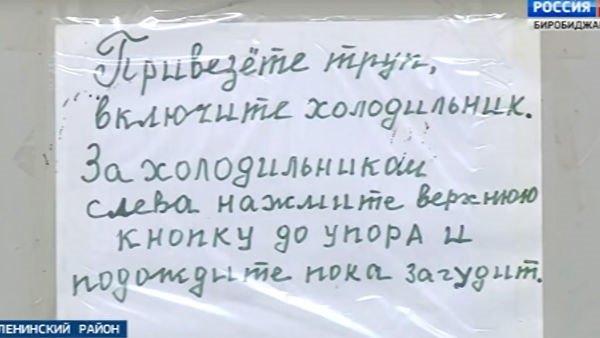 РОССИЯ
БИРОБИДЖА
Привезёте труп,
включите холодильник.
За холодильником
слева нажмите верхнюю
кнопку до упора и
подождите пока загудит.
ЛЕНИНСКИЙ РАЙОН